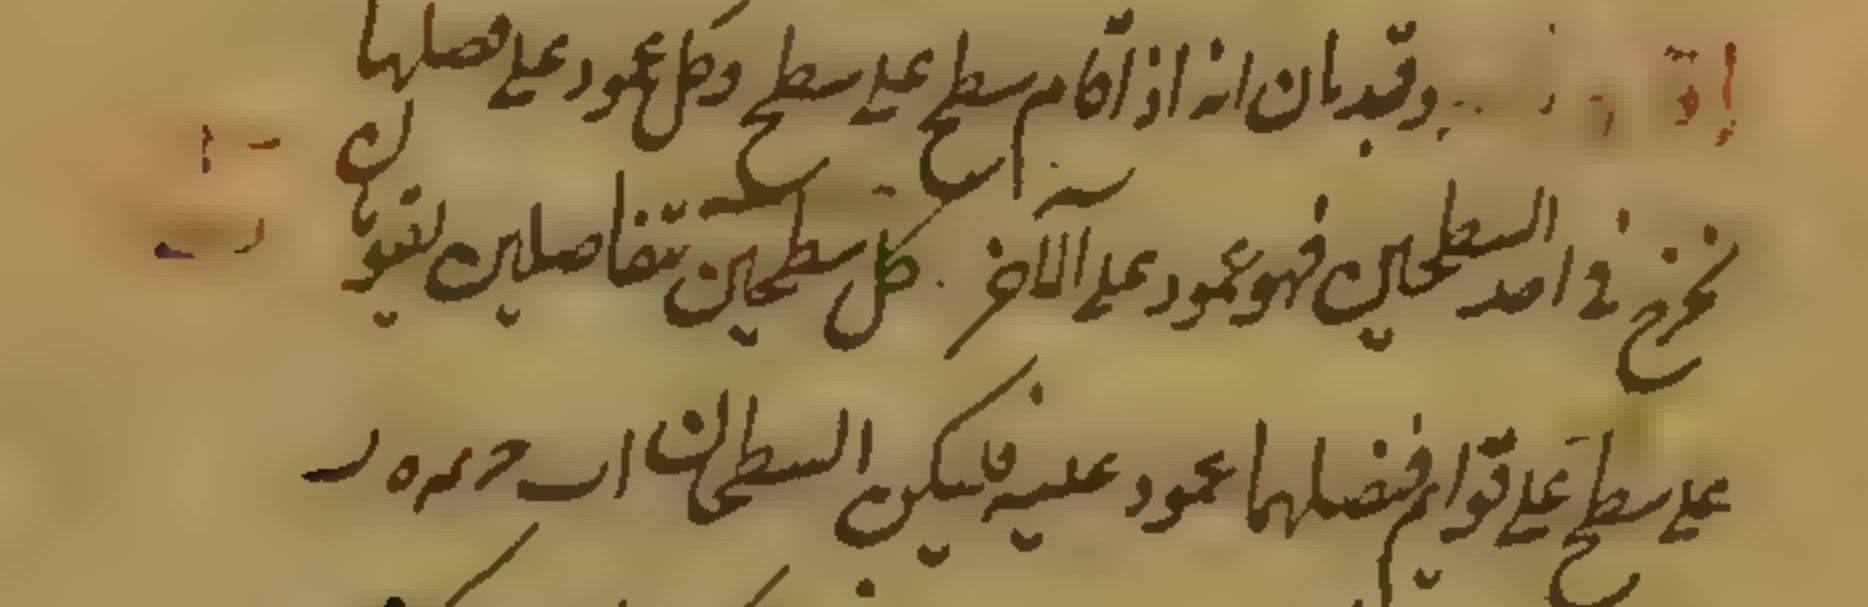 وقد بان انه اذا قام سطح على سطح وكل عمود على فصلهما
يخرج في احد السطحين فهو عمود على الآخر . كل سطحين يتفاصلين يقو
على سطح على قوايم ففصلهما عمود عليه فليكن السطحان اب حد ه ر